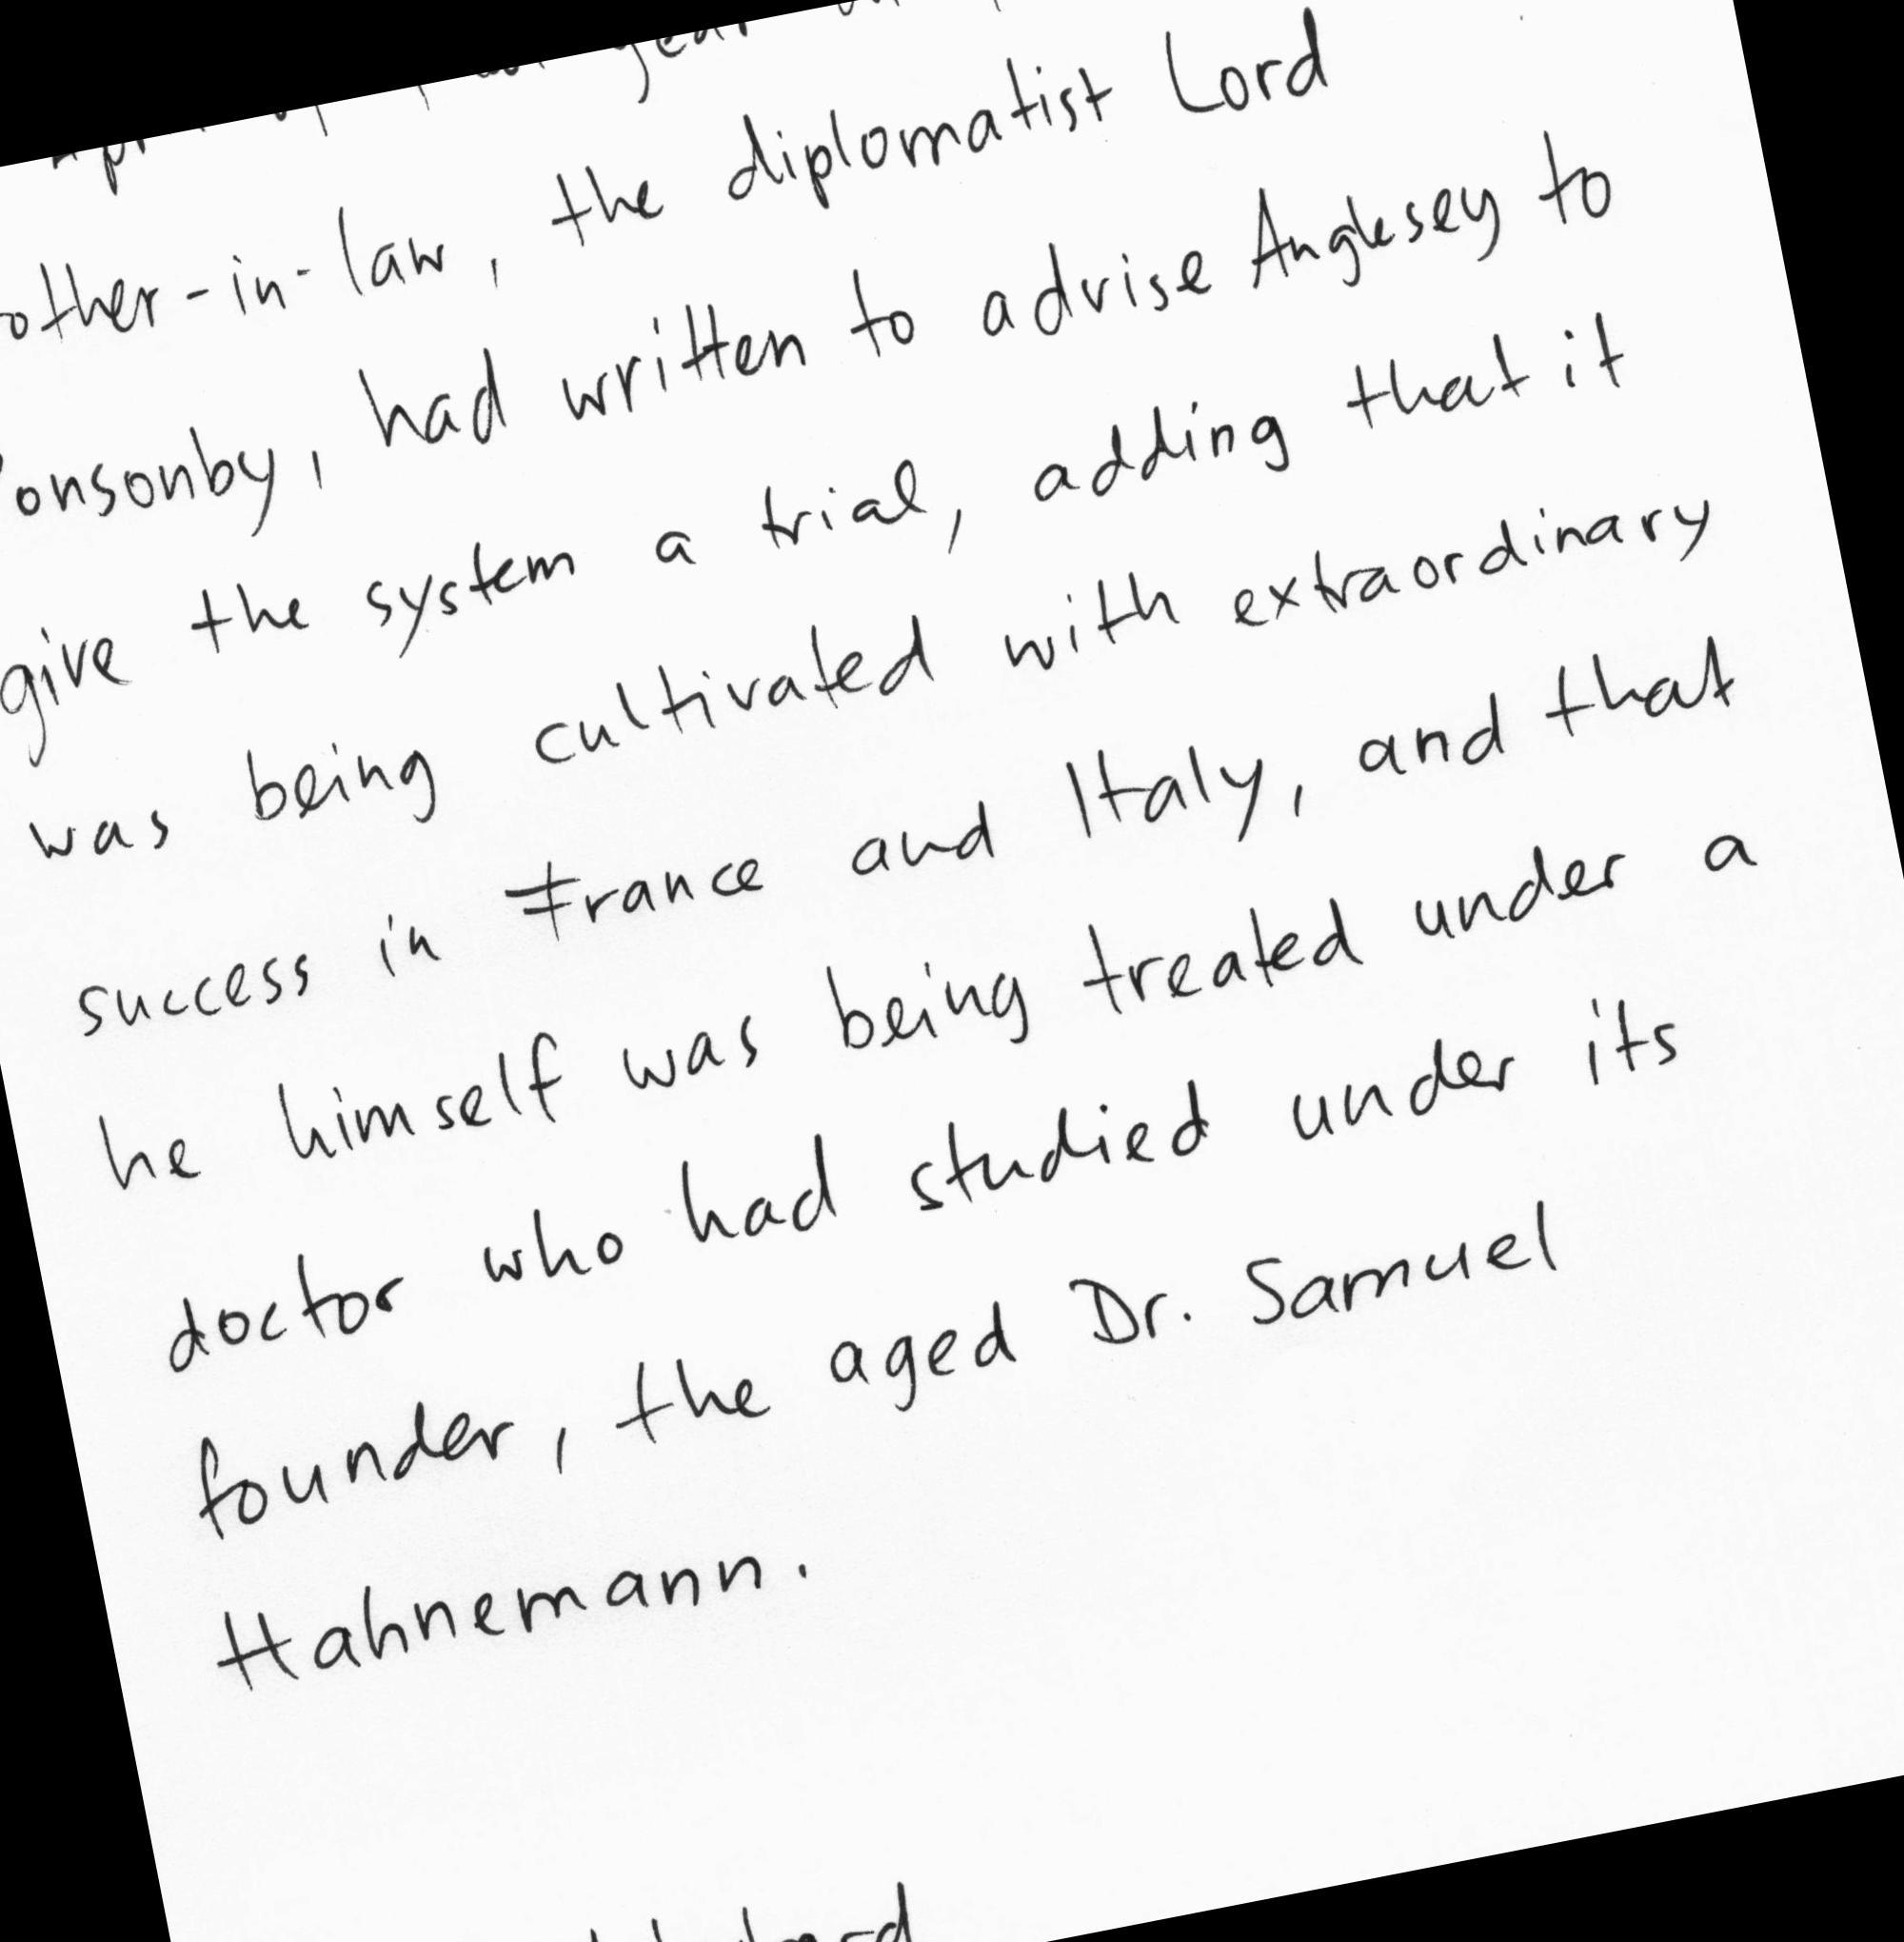 other-in-law, the diplomatist Lord
onsonby, had written to advise Anglesey to
give the system a trial, adding that it
was being cultivated with extraordinary
success in France and Italy, and that
he himself was being treated under a
doctor who had studied under its
founder, the aged Dr. Samuel
Hahnemann.